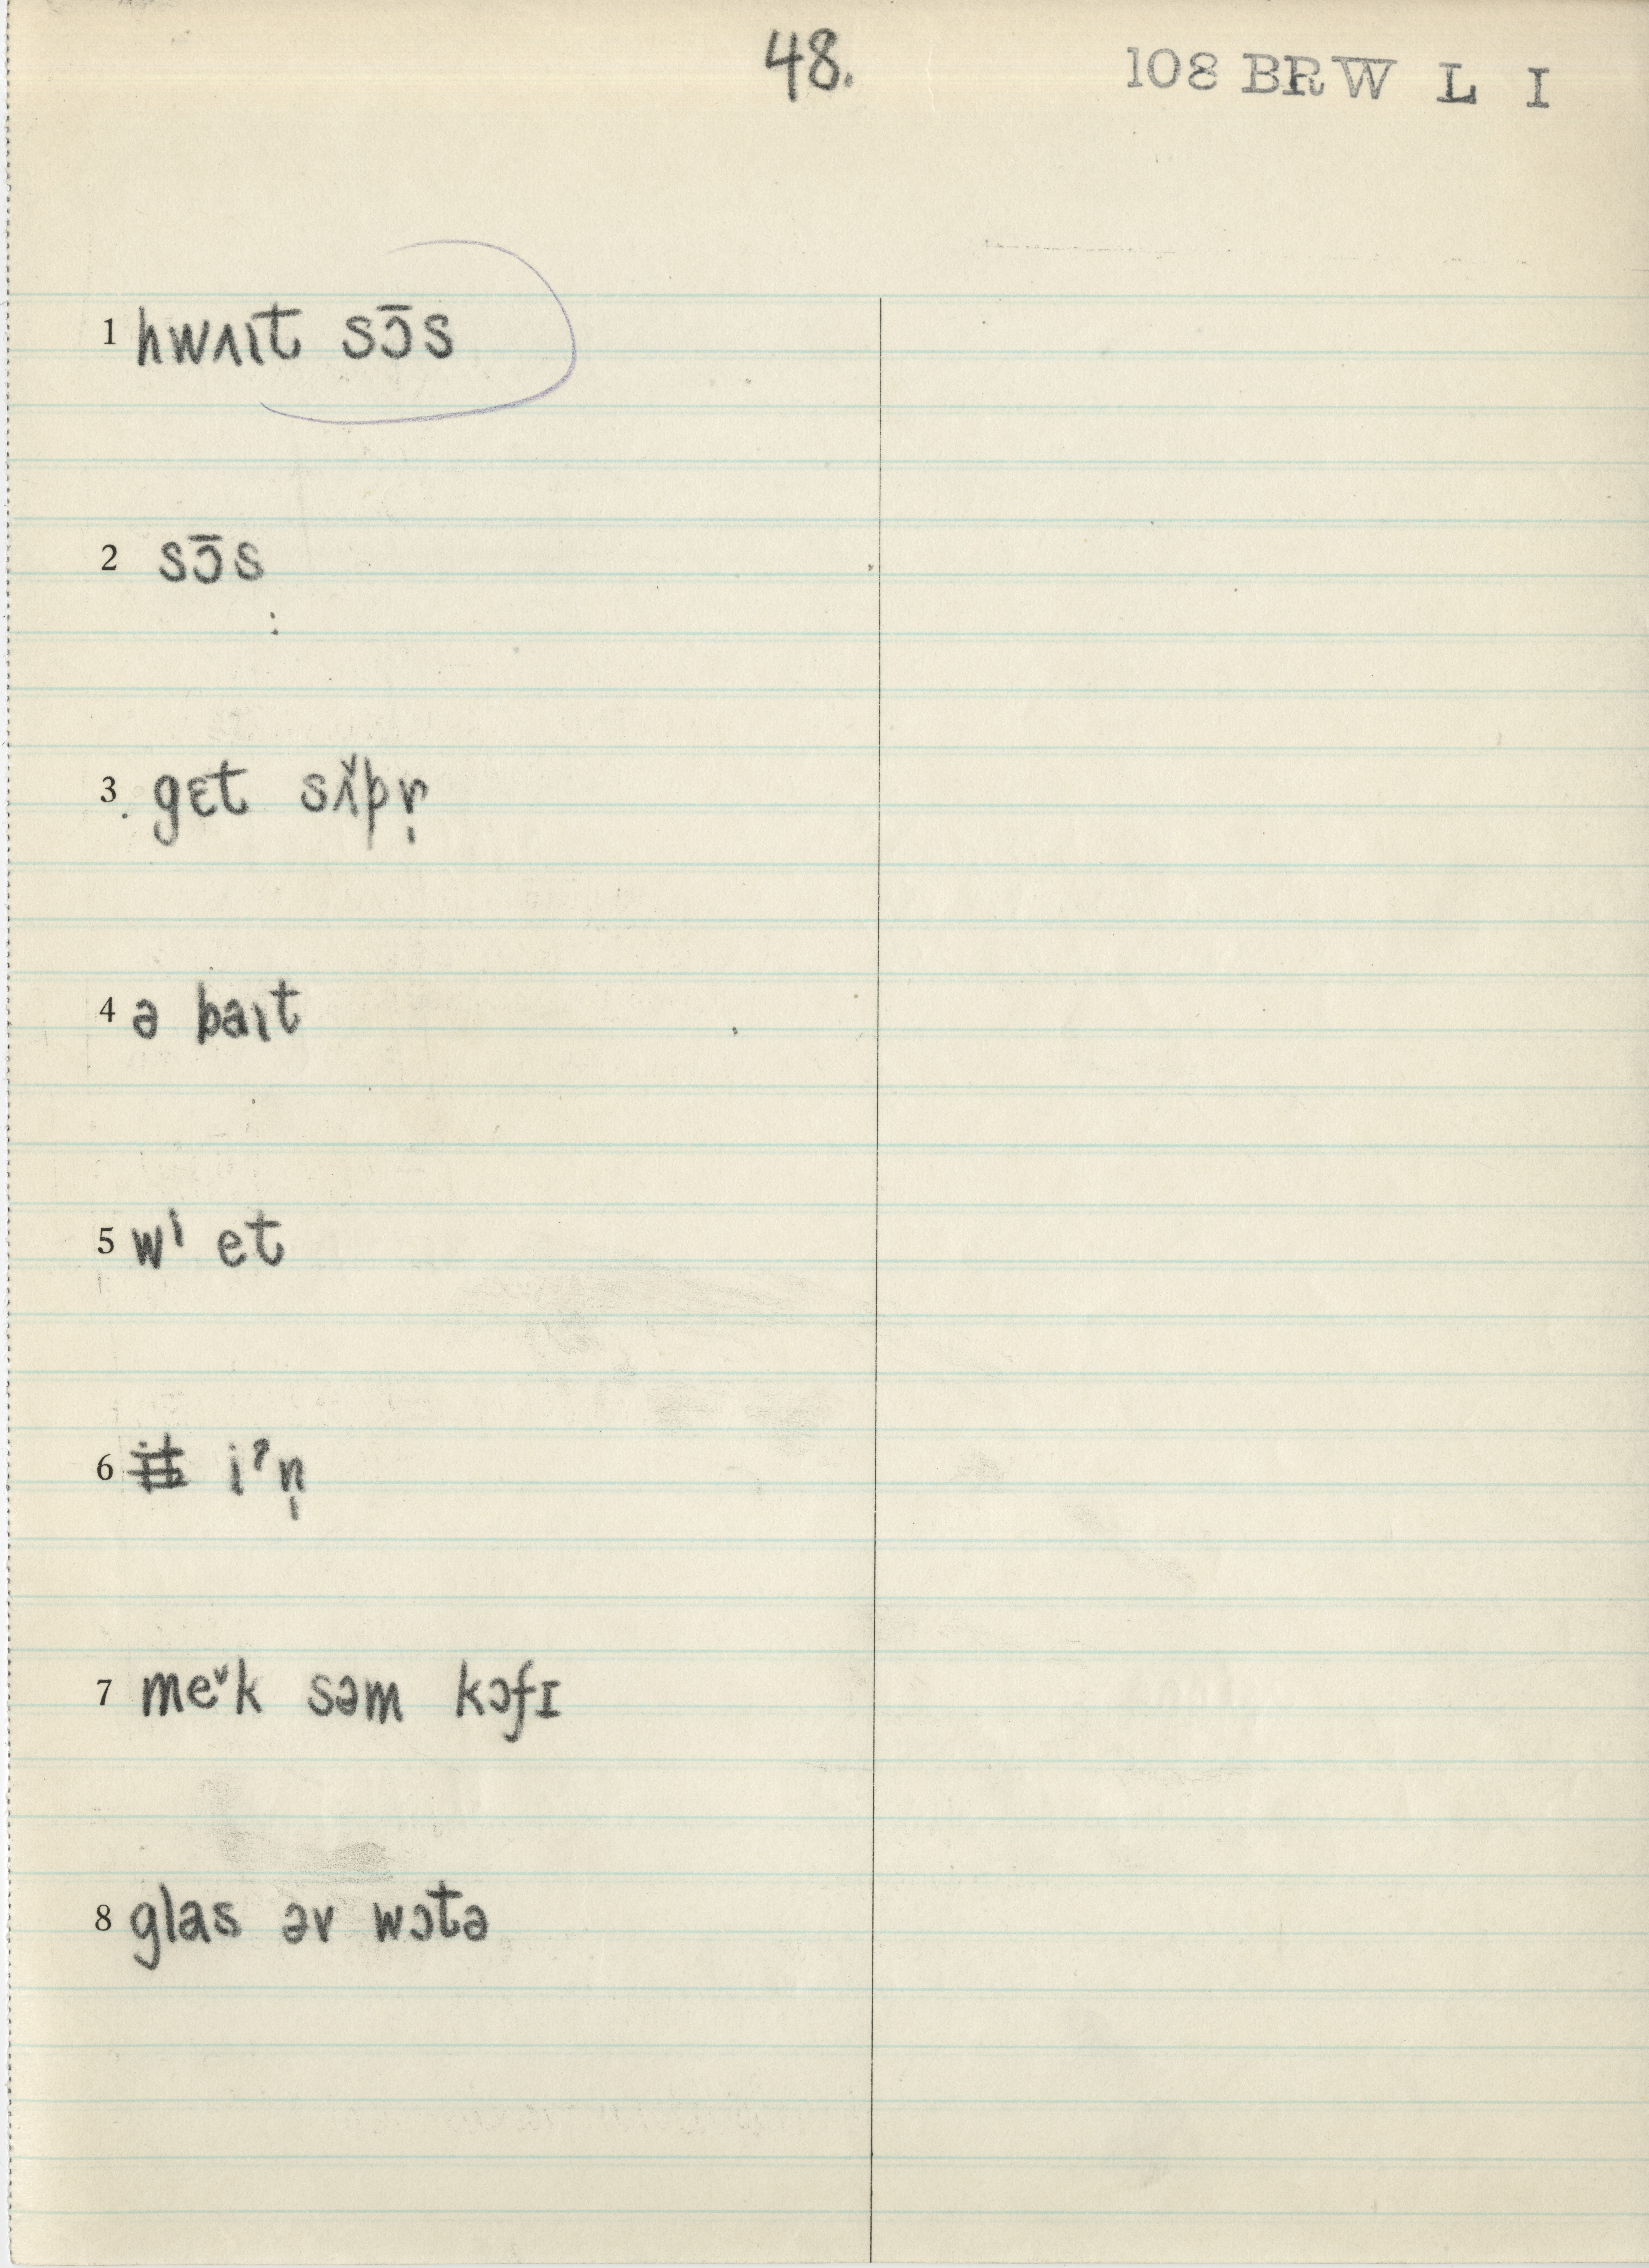 48.
108 BRW L I
1 hwʌɪt sɔ̄s
2 sɔ̄s
3 gɛt sʌ̌pr̩
4 ə baɪt
5 wˈ et
6 iˀn̩
7 meˇk səm kɔfɪ
8 glas əv wɔtə